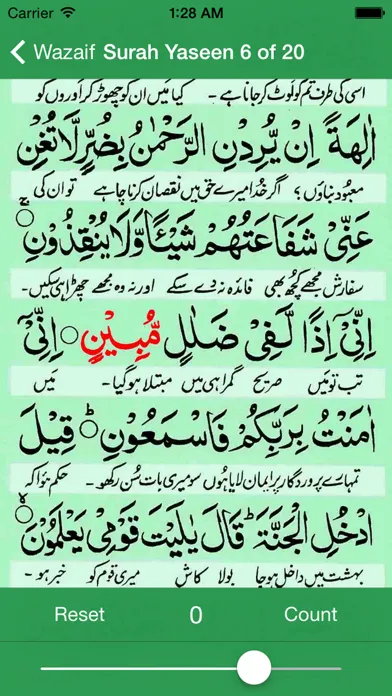 Carrier 1:28 AM
Wazaif Surah Yaseen 6 of 20
اسی کی طرف تم کو لوٹ کر جانا ہے - کیا میں ان کو چھوڑ کر اَوروں کو
اٰلِهَةً اِنْ يُّرِدْنِ الرَّحْمٰنُ بِضُرٍّ لَّا تُغْنِ
معبود بناؤں؟ اگر خُدا میرے حق میں نقصان کرنا چاہے تو ان کی
عَنِّيْ شَفَاعَتُهُمْ شَيْـًٔا وَّلَا يُنْقِذُوْنِ ۚ
سفارش مجھے کچھ بھی فائدہ نہ دے سکے اور نہ وہ مجھے چھڑا ہی سکیں -
اِنِّيْۤ اِذًا لَّفِيْ ضَلٰلٍ مُّبِيْنٍ اِنِّيْۤ
تب تو میں صریح گمراہی میں مبتلا ہو گیا - میں
اٰمَنْتُ بِرَبِّكُمْ فَاسْمَعُوْنِ ؕ قِيْلَ
تمہارے پروردگار پر ایمان لایا ہوں سو میری بات سُن رکھو - حکم ہوا کہ
ادْخُلِ الْجَنَّةَ ؕ قَالَ يٰلَيْتَ قَوْمِيْ يَعْلَمُوْنَ ۙ
بہشت میں داخل ہو جا بولا کاش میری قوم کو خبر ہو -
Reset 0 Count